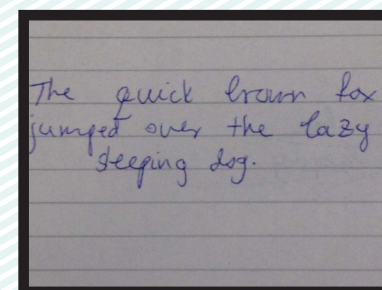 The quick brown fox
jumped over the lazy
sleeping dog.